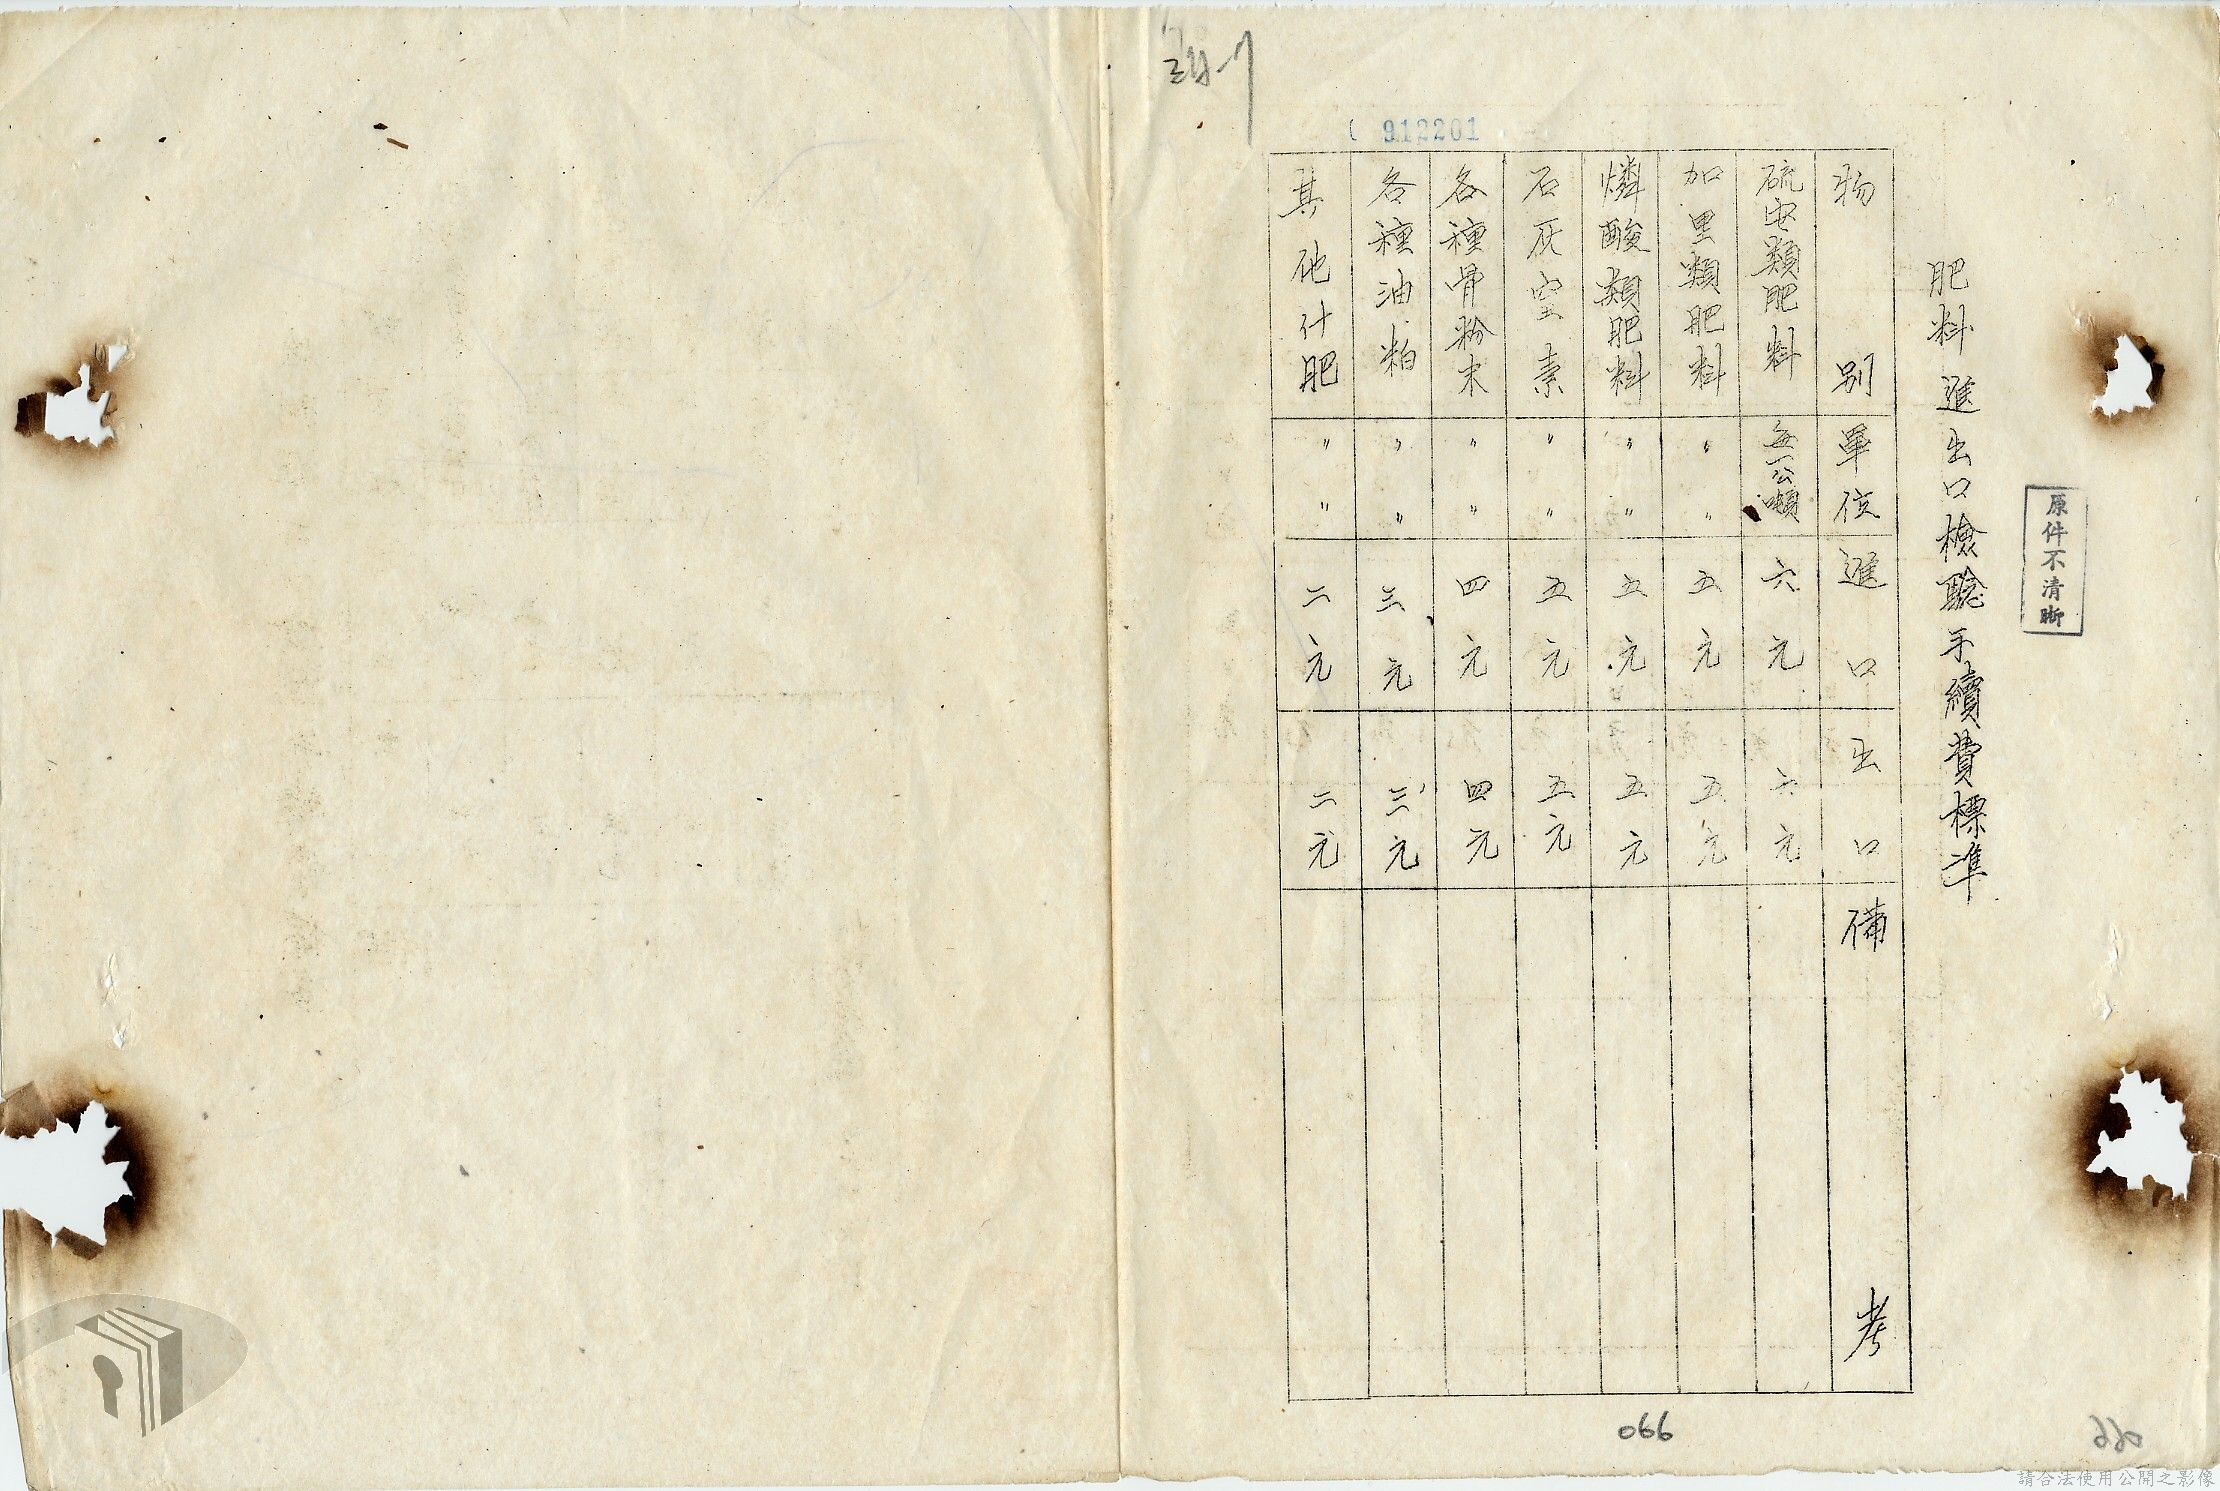 原件不清晰
肥料進出口檢驗手續費標準
物別 單位 進口 出口 備考
硫安類肥料 每一公噸 六元 六元
加里類肥料 〃 〃 五元 五元
燐酸類肥料 〃 〃 五元 五元
石灰窒素 〃 〃 五元 五元
各種骨粉末 〃 〃 四元 四元
各種油粕 〃 〃 三元 三元
其他什肥 〃 〃 二元 二元
912201
066
請合法使用公開之影像